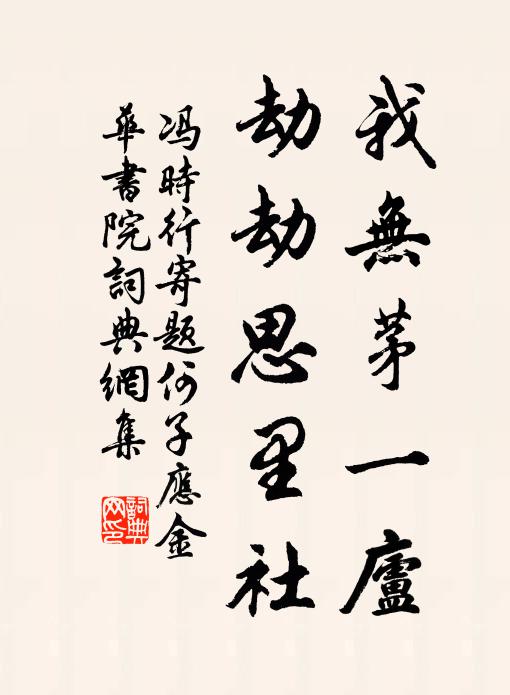 我無茅一廬
劫劫思里社
馮時行寄題何子應金
華書院詞典網集
詞典網印